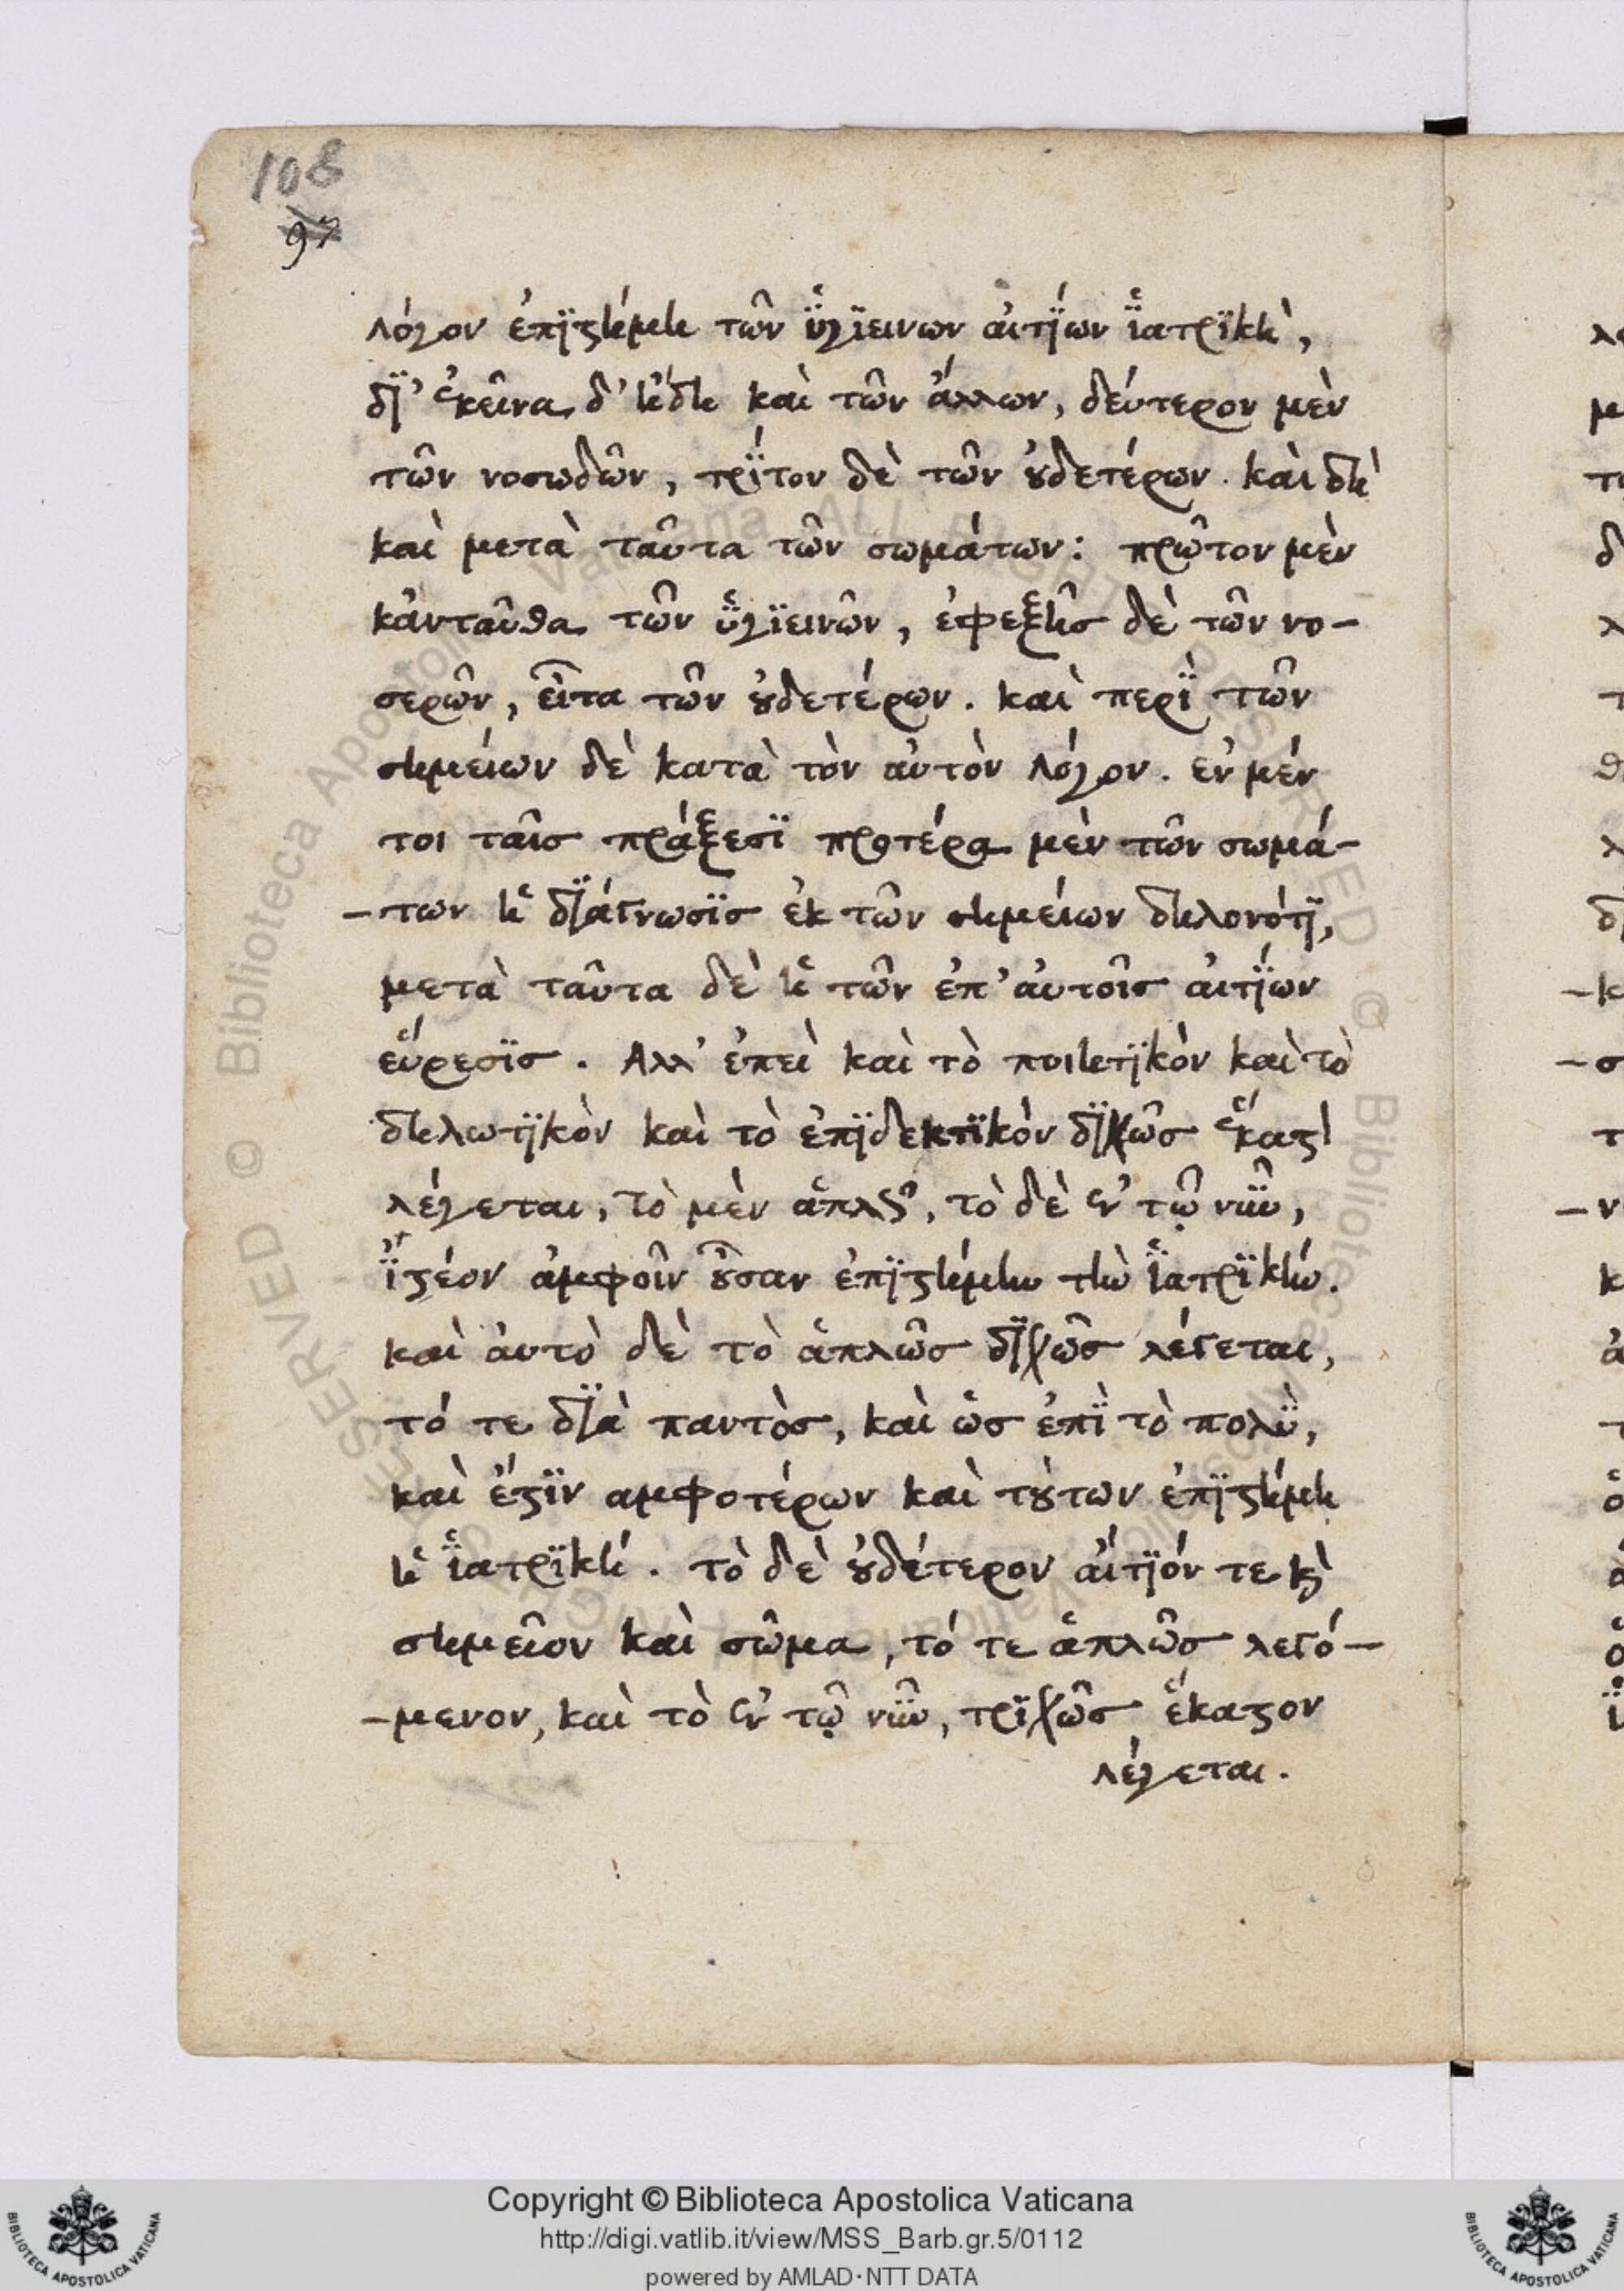 108
97
λόγον ἐπϊστήμη τῶν ὑγϊεινων ἀιτΐων ϊατρϊκὴ,
δϊ' ἐκεῖνα δ' ἤδη καὶ τῶν ἄλλων, δέυτερον μὲν
τῶν νοσωδῶν, τρΐτον δὲ τῶν ȣ̓δετέρων. καὶ δὴ
καὶ μετὰ ταῦτα τῶν σωμάτων: πρῶτον μὲν
κἀνταῦθα τῶν ὑγϊεινῶν, ἐφεξῆσ δὲ τῶν νο-
σερῶν, εἶτα τῶν ȣ̓δετέρων. καὶ περῒ τῶν
σημείων δὲ κατὰ τὸν ἀυτὸν λόγον. ἐν μέν
τοι ταῖσ πράξεσϊ προτέρα μὲν τῶν σωμά-
-των ἡ δϊάγνωσϊσ ἐκ τῶν σημείων δηλονότϊ,
μετὰ ταῦτα δὲ ἡ τῶν ἐπ' ἀυτοῖσ ἀιτΐων
εὕρεσϊσ. Αλλ' ἐπεὶ καὶ τὸ ποιητϊκὸν καὶ τὸ
δηλωτϊκὸν καὶ τὸ ἐπϊδεκτϊκὸν δϊχῶσ ἕκαστ
λέγεται, τὸ μὲν ἁπλῶς, τὸ δὲ ἐν τῷ νῦν,
ϊ̓στέον ἀμφοῖν ȣ̓͂σαν ἐπϊστήμην τὴν ϊατρϊκήν.
καὶ ἀυτὸ δὲ τὸ ἁπλῶσ δϊχῶσ λέγεται,
τό τε δϊὰ παντὸσ, καὶ ὡσ ἐπῒ τὸ πολὺ,
καὶ ἔστϊν αμφοτέρων καὶ τȣ́των ἐπϊστήμη
ἡ ϊατρϊκή. τὸ δὲ ȣ̓δέτερον ἄιτϊόν τε κ̀
σημεῖον καὶ σῶμα, τό τε ἁπλῶσ λεγό-
-μενον, καὶ τὸ ἐν τῷ νῦν, τρϊχῶσ ἕκαστον
λέγεται.
Copyright © Biblioteca Apostolica Vaticana
http://digi.vatlib.it/view/MSS_Barb.gr.5/0112
powered by AMLAD·NTT DATA